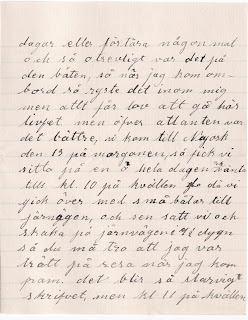 dagar eller förtära någon mal
och så otrevligt var det på
den båten, så när jag kom om-
bord så ryste det inom mig
men allt för lov att gå här
livet men öfver atlanten var
det bättre, vi kom till Nijosk
den 13 på morgonen, så fick vi
sitta på en ö hela dagen
till kl. 10 på kvällen då vi
gick över med små båtar till
järnvägen, och sen satt vi och
skaka på järnvägen 4½ dygn
så du må tro att jag var
trött på resa när jag kom
fram. det blir så slarvigt
skrifvet, men kl 11 på kvällen